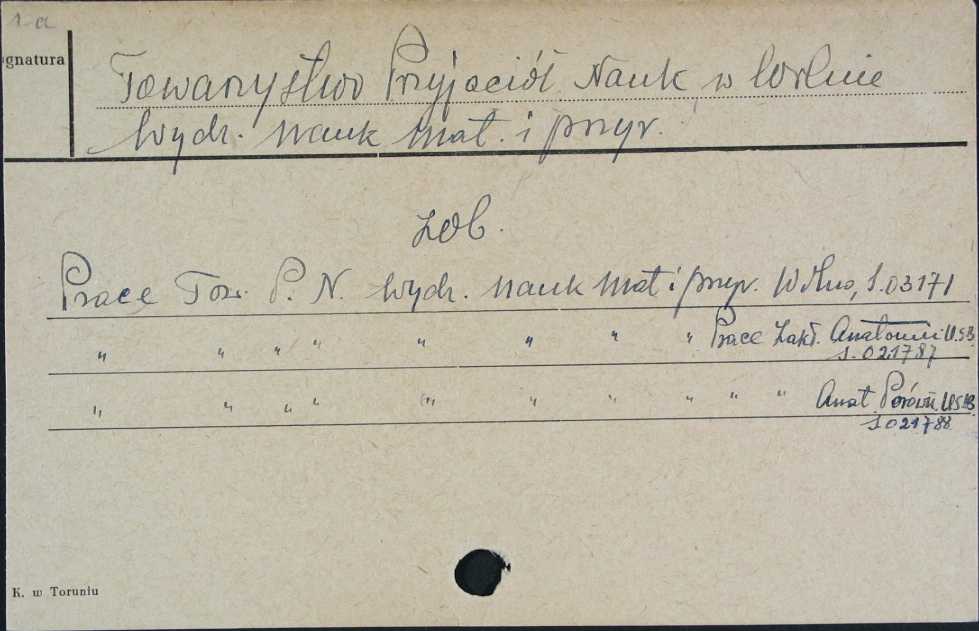 1-a
gnatura
Towarzystwo Przyjaciół Nauk w Wilnie
Wydz. nauk mat. i przyr.
Zob.
Prace Tow. P. N. Wydz. nauk mat i przyr. Wilno, S.03171
" " " " " " " " Prace Zakł. Anatomii U.S.B.
S.021787
" " " " " " " " " " Anat Porówn. U.S.B.
S 021788
K. w Toruniu